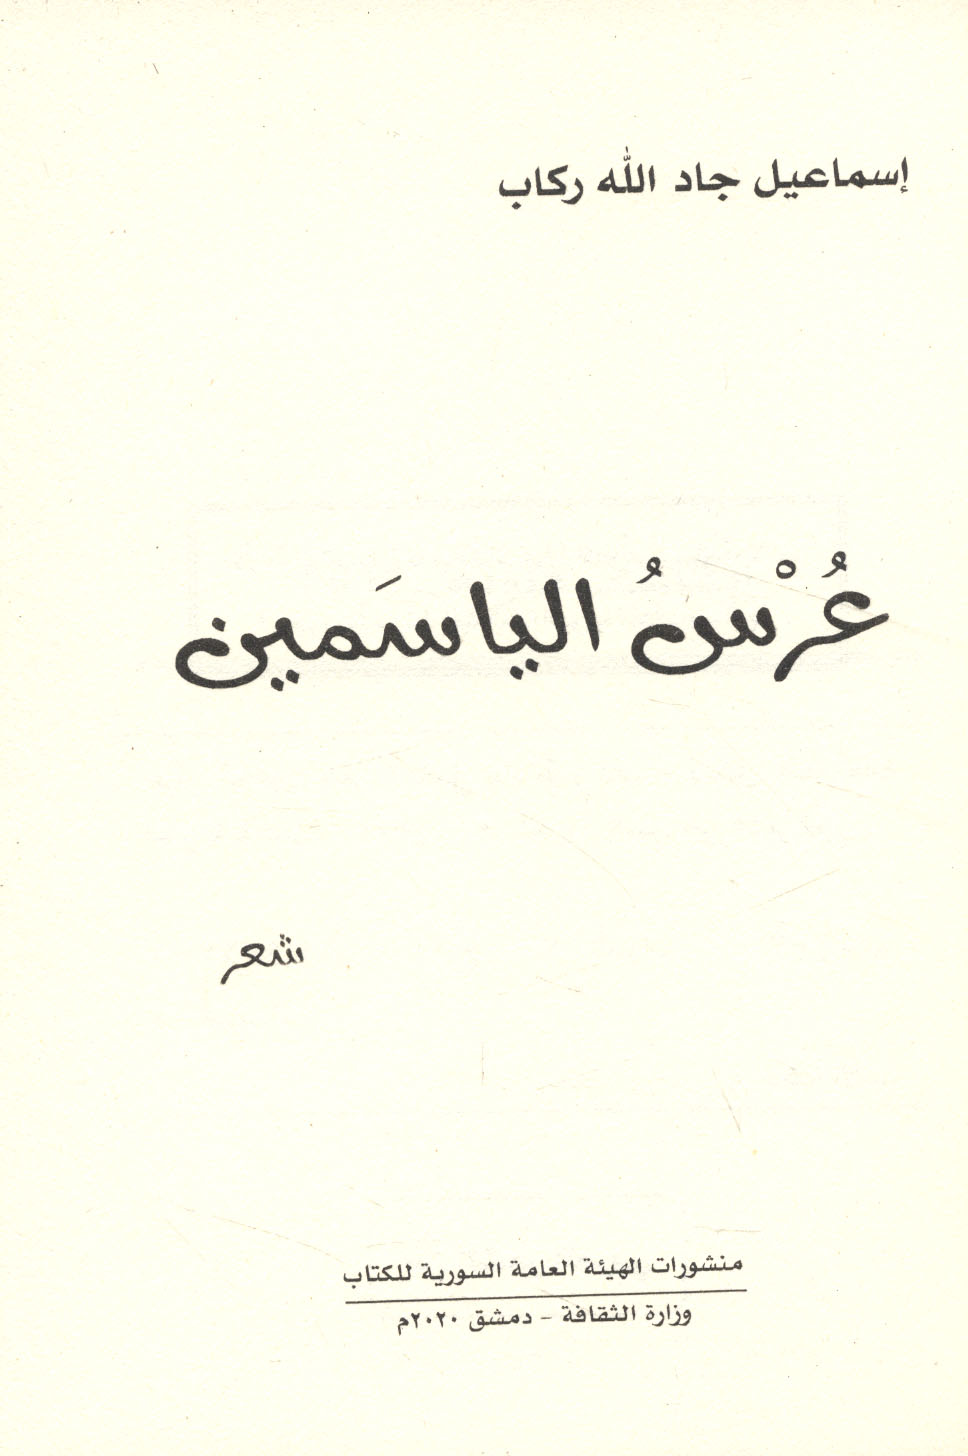 إسماعيل جاد الله ركاب
عُرْسُ الياسَمين
شعر
منشورات الهيئة العامة السورية للكتاب
وزارة الثقافة - دمشق ٢٠٢٠م